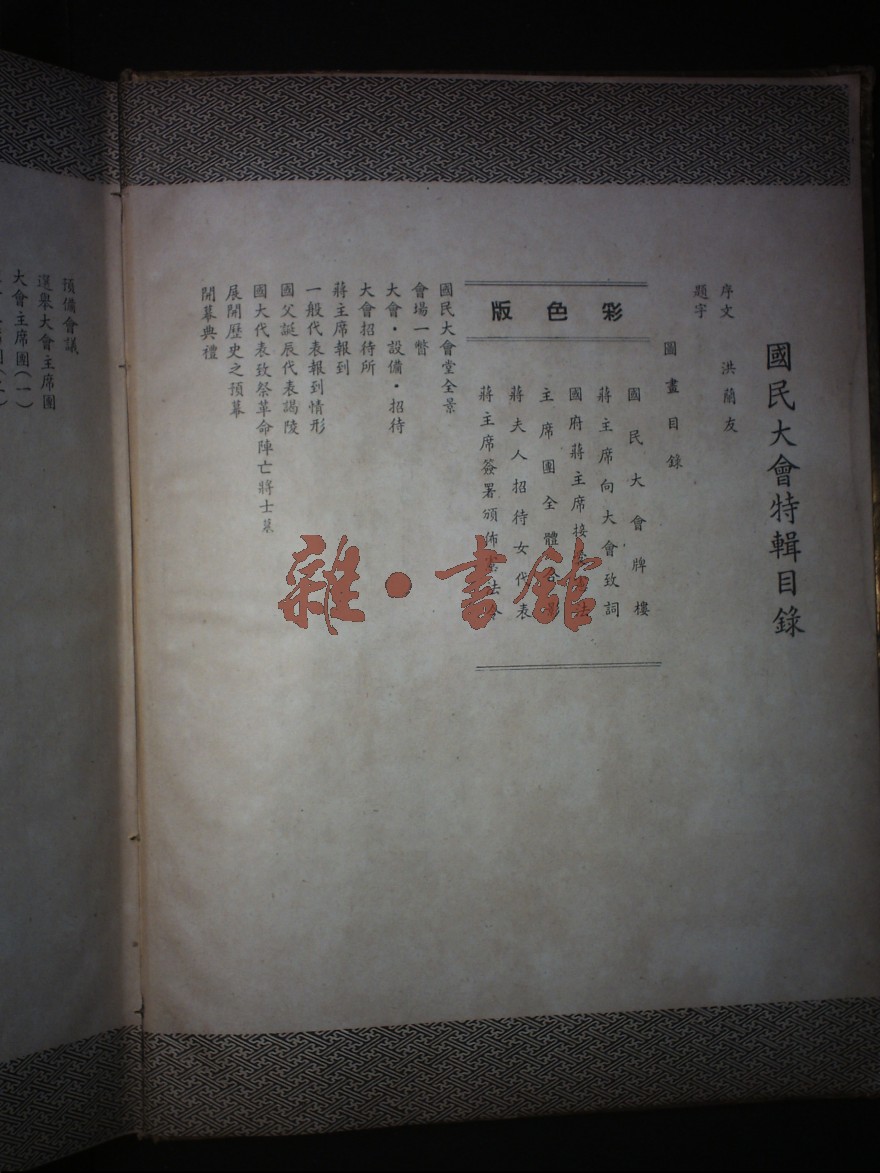 國民大會特輯目錄
序文 洪蘭友
題字
圖畫目錄
彩色版
國民大會牌樓
蔣主席向大會致詞
國府蔣主席接
法
主席團全體
影
蔣夫人招待女代表
蔣主席簽署頒佈
法
國民大會堂全景
會場一瞥
大會·設備·招待
大會招待所
蔣主席報到
一般代表報到情形
國父誕辰代表謁陵
國大代表致祭革命陣亡將士墓
展開歷史之預幕
開幕典禮
預備會議
選舉大會主席團
大會主席團(一)
雜·書館